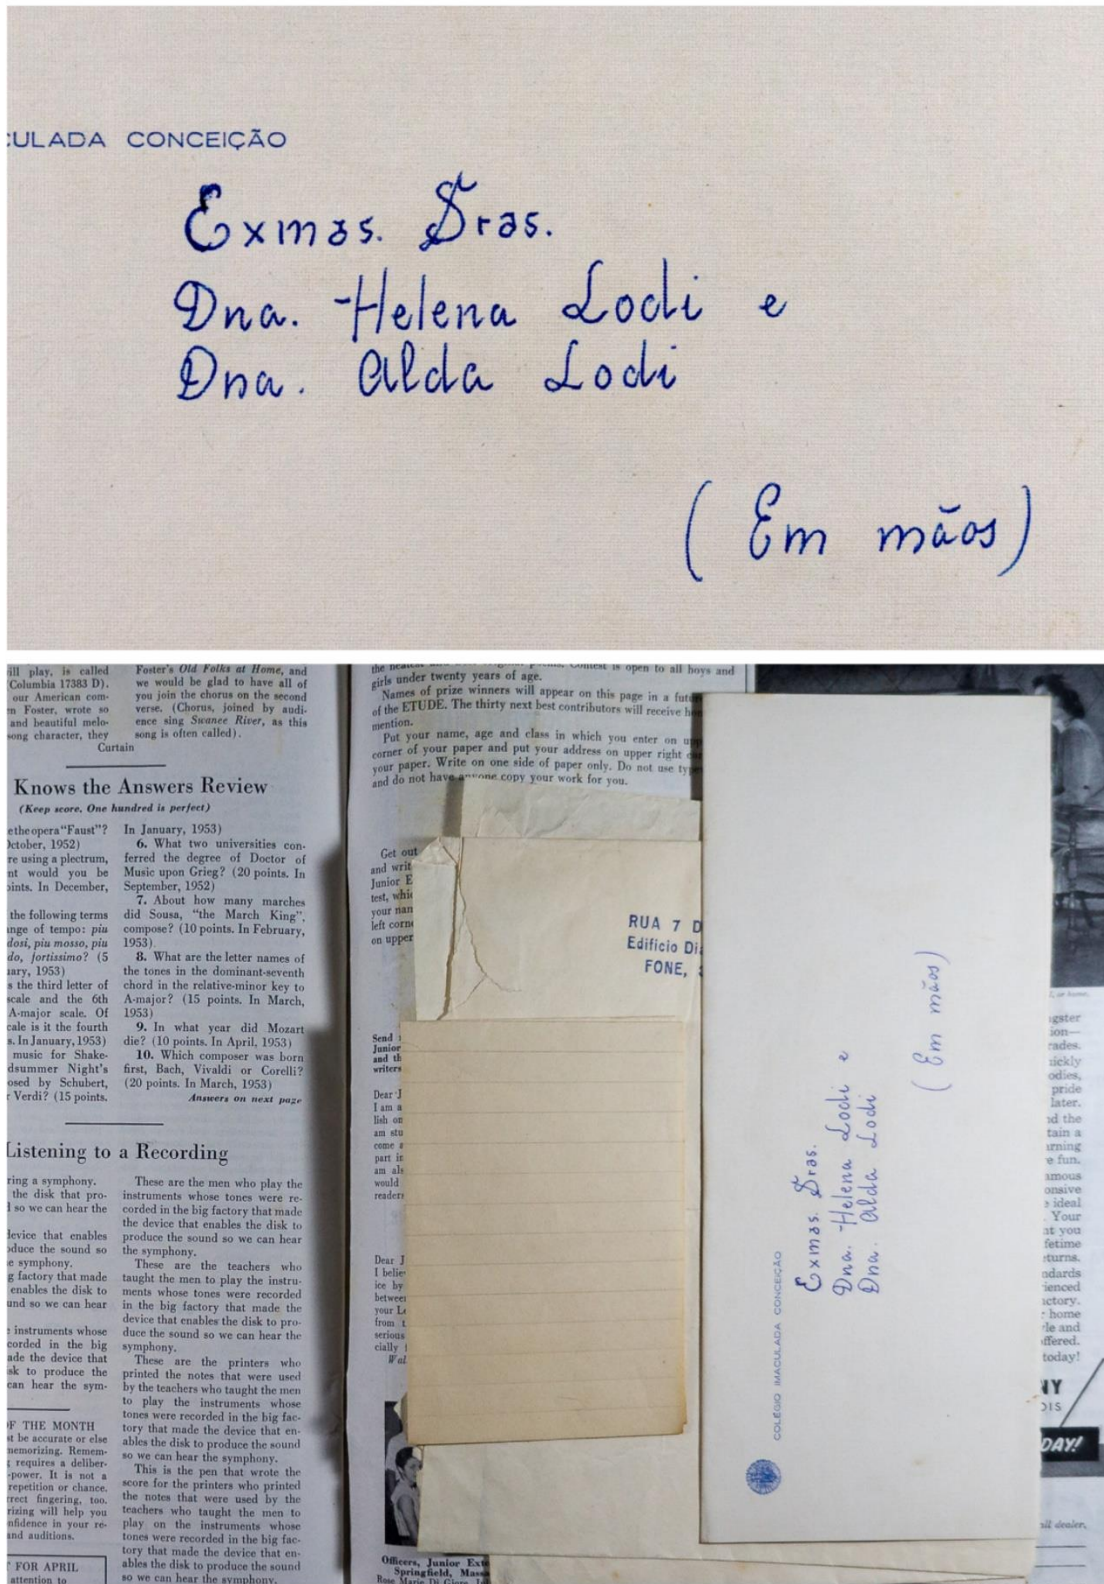 CULADA CONCEIÇÃO
Exmas. Sras.
Dna. Helena Lodi e
Dna. Alda Lodi
(Em mãos)
ill play, is called
Columbia 17383 D).
our American com-
n Foster, wrote so
and beautiful melo-
song character, they
Foster's Old Folks at Home, and
we would be glad to have all of
you join the chorus on the second
verse. (Chorus, joined by audi-
ence sing Swanee River, as this
song is often called).
Curtain
Knows the Answers Review
(Keep score. One hundred is perfect)
e the opera "Faust"?
October, 1952)
re using a plectrum,
nt would you be
oints. In December,
the following terms
nge of tempo: piu
dosi, piu mosso, piu
do, fortissimo? (5
uary, 1953)
s the third letter of
scale and the 6th
A-major scale. Of
cale is it the fourth
s. In January, 1953)
music for Shake-
dsummer Night's
osed by Schubert,
Verdi? (15 points.
In January, 1953)
6. What two universities con-
ferred the degree of Doctor of
Music upon Grieg? (20 points. In
September, 1952)
7. About how many marches
did Sousa, "the March King",
compose? (10 points. In February,
1953).
8. What are the letter names of
the tones in the dominant-seventh
chord in the relative-minor key to
A-major? (15 points. In March,
1953)
9. In what year did Mozart
die? (10 points. In April, 1953)
10. Which composer was born
first, Bach, Vivaldi or Corelli?
(20 points. In March, 1953)
Answers on next page
Listening to a Recording
ring a symphony.
the disk that pro-
d so we can hear the
device that enables
oduce the sound so
e symphony.
g factory that made
enables the disk to
und so we can hear
instruments whose
corded in the big
ade the device that
sk to produce the
can hear the sym-
These are the men who play the
instruments whose tones were re-
corded in the big factory that made
the device that enables the disk to
produce the sound so we can hear
the symphony.
These are the teachers who
taught the men to play the instru-
ments whose tones were recorded
in the big factory that made the
device that enables the disk to pro-
duce the sound so we can hear the
symphony.
These are the printers who
printed the notes that were used
by the teachers who taught the men
to play the instruments whose
tones were recorded in the big fac-
tory that made the device that en-
ables the disk to produce the sound
so we can hear the symphony.
This is the pen that wrote the
score for the printers who printed
the notes that were used by the
teachers who taught the men to
play on the instruments whose
tones were recorded in the big fac-
tory that made the device that en-
ables the disk to produce the sound
so we can hear the symphony.
OF THE MONTH
st be accurate or else
memorizing. Remem-
requires a deliber-
-power. It is not a
repetition or chance.
rrect fingering, too.
rizing will help you
nfidence in your re-
and auditions.
FOR APRIL
attention to
girls under twenty years of age.
Names of prize winners will appear on this page in a futu
of the ETUDE. The thirty next best contributors will receive ho
mention.
Put your name, age and class in which you enter on up
corner of your paper and put your address on upper right cor
your paper. Write on one side of paper only. Do not use type
and do not have anyone copy your work for you.
Get out
and writ
Junior E
test, whi
your nam
left corne
on upper
RUA 7 D
Edificio Dia
FONE,
Send
Junior
and th
writers
Dear J
I am a
lish on
am stu
come a
part in
am als
would
readers
Dear J
I believ
ice by
between
your Le
from t
serious
cially
Wal
Officers, Junior Exte
Springfield, Mass
COLÉGIO IMACULADA CONCEIÇÃO
Exmas. Sras.
Dna. Helena Lodi e
Dna. Alda Lodi
(Em mãos)
or home.
ngster
ion—
rades.
uickly
odies,
pride
later.
nd the
tain a
urning
e fun.
amous
onsive
s ideal
Your
at you
fetime
eturns.
ndards
ienced
actory.
home
le and
offered.
today!
NY
OIS
DAY!
dealer.